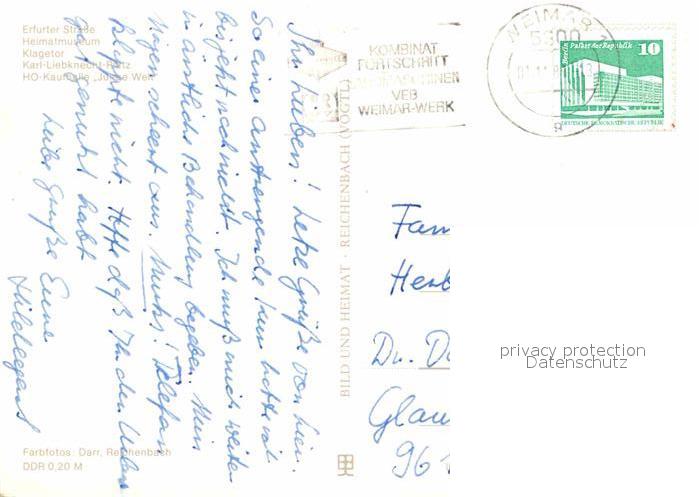 Erfurter Straße
Heimatmuseum
Klagetor
Karl-Liebknecht-Platz
HO-Kaufhalle „Junge Welt"
Ihr Lieben! Letzte Grüße von hier.
So eine anstrengende Kur hatte ich
bis jetzt noch nicht. Ich muß mich weiter
in ärztliche Behandlung begeben. Mein
Magen scheert aus. Telefon
klappte nicht. Hoffe daß Ihr den Urlaub
gut genutzt habt
Liebe Grüße Eure
Hildegard
Farbfotos: Darr, Reichenbach
DDR 0,20 M
BILD UND HEIMAT · REICHENBACH (VOGTL)
KOMBINAT
FORTSCHRITT
LANDMASCHINEN
VEB
WEIMAR-WERK
WEIMAR 1
5300
a
Berlin Palast der Republik 10
DEUTSCHE DEMOKRATISCHE REPUBLIK
Fam
Herb
Dr. D
Glau
961
privacy protection
Datenschutz